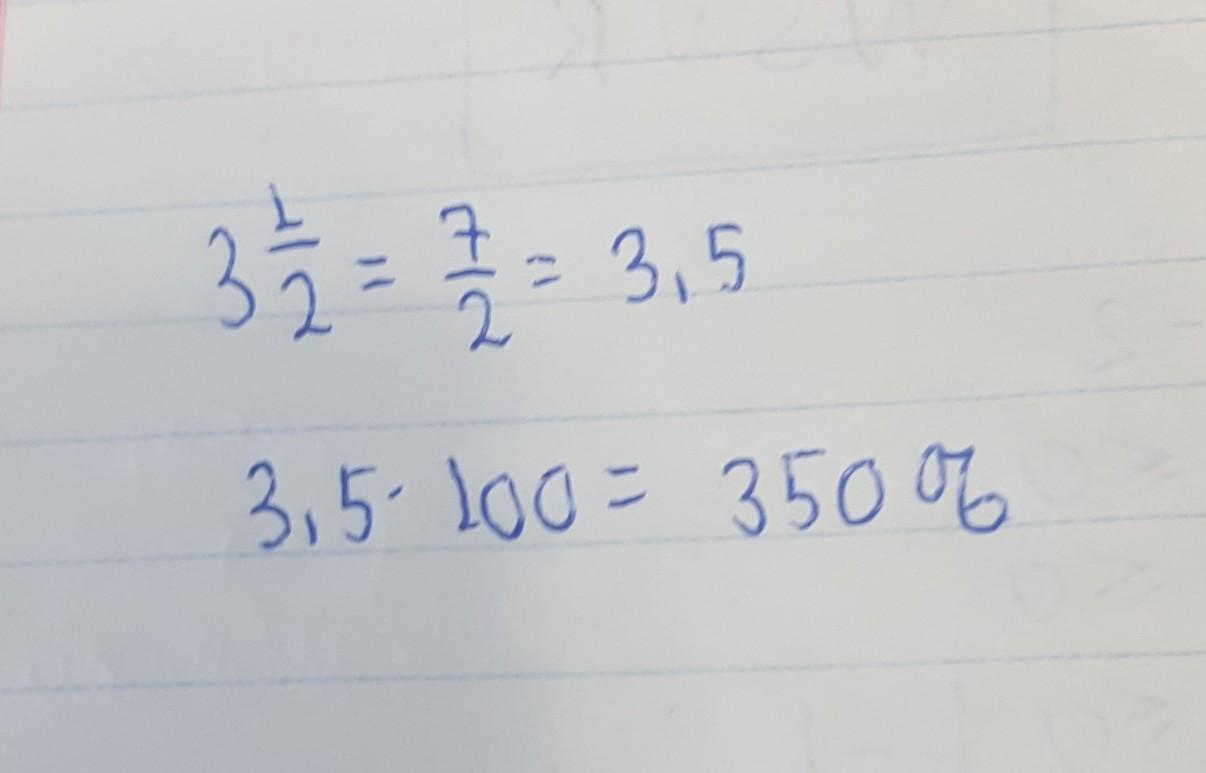 3 1/2 = 7/2 = 3,5
3,5 · 100 = 350 %